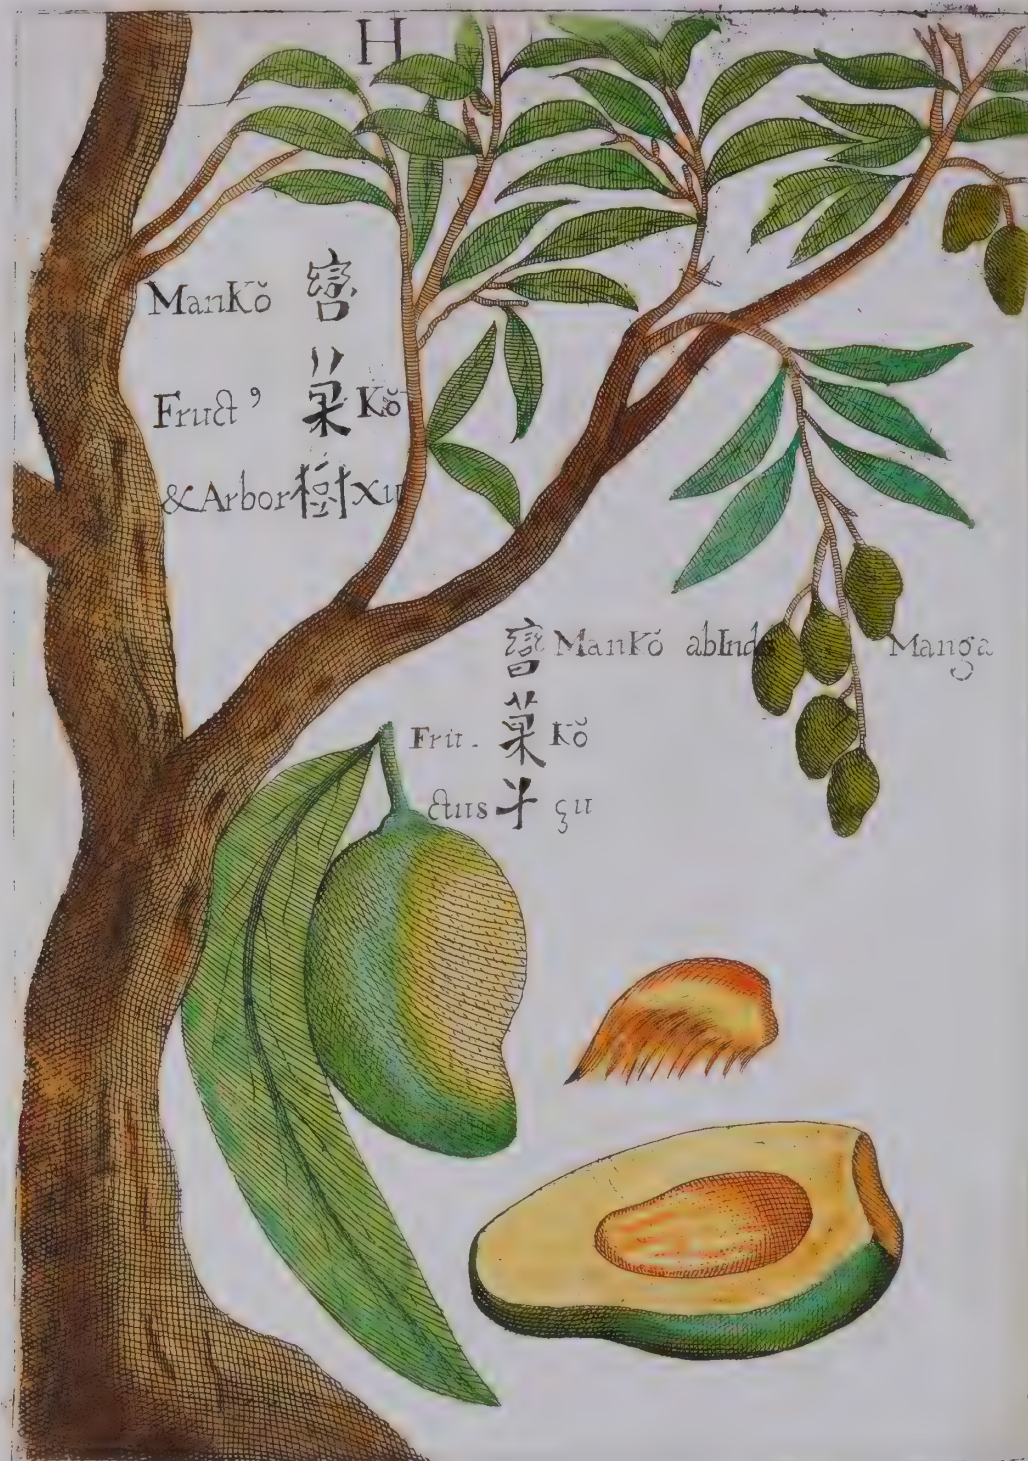 H
ManKŏ
Fruct⁹ 菓 Kŏ
&Arbor 樹 Xu
ManKŏ ab Manga
Fru- 菓 Kŏ
ctus çu